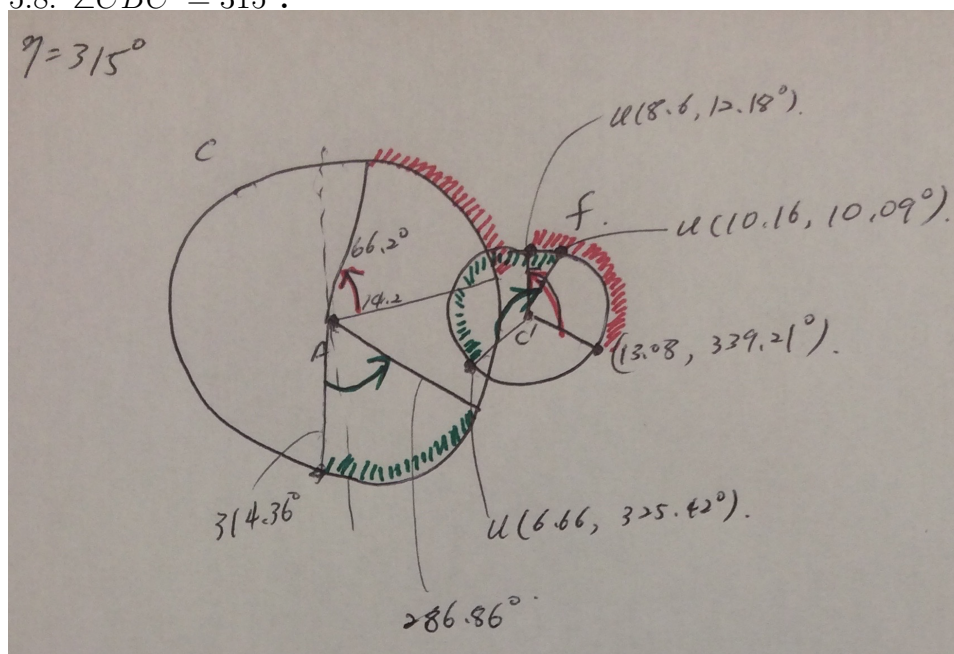 η=315°
C
u(8.6, 12.18°).
f.
u(10.16, 10.09°).
66.2°
14.2
A
C'
(13.08, 339.21°).
314.36°
u(6.66, 325.42°).
286.86°